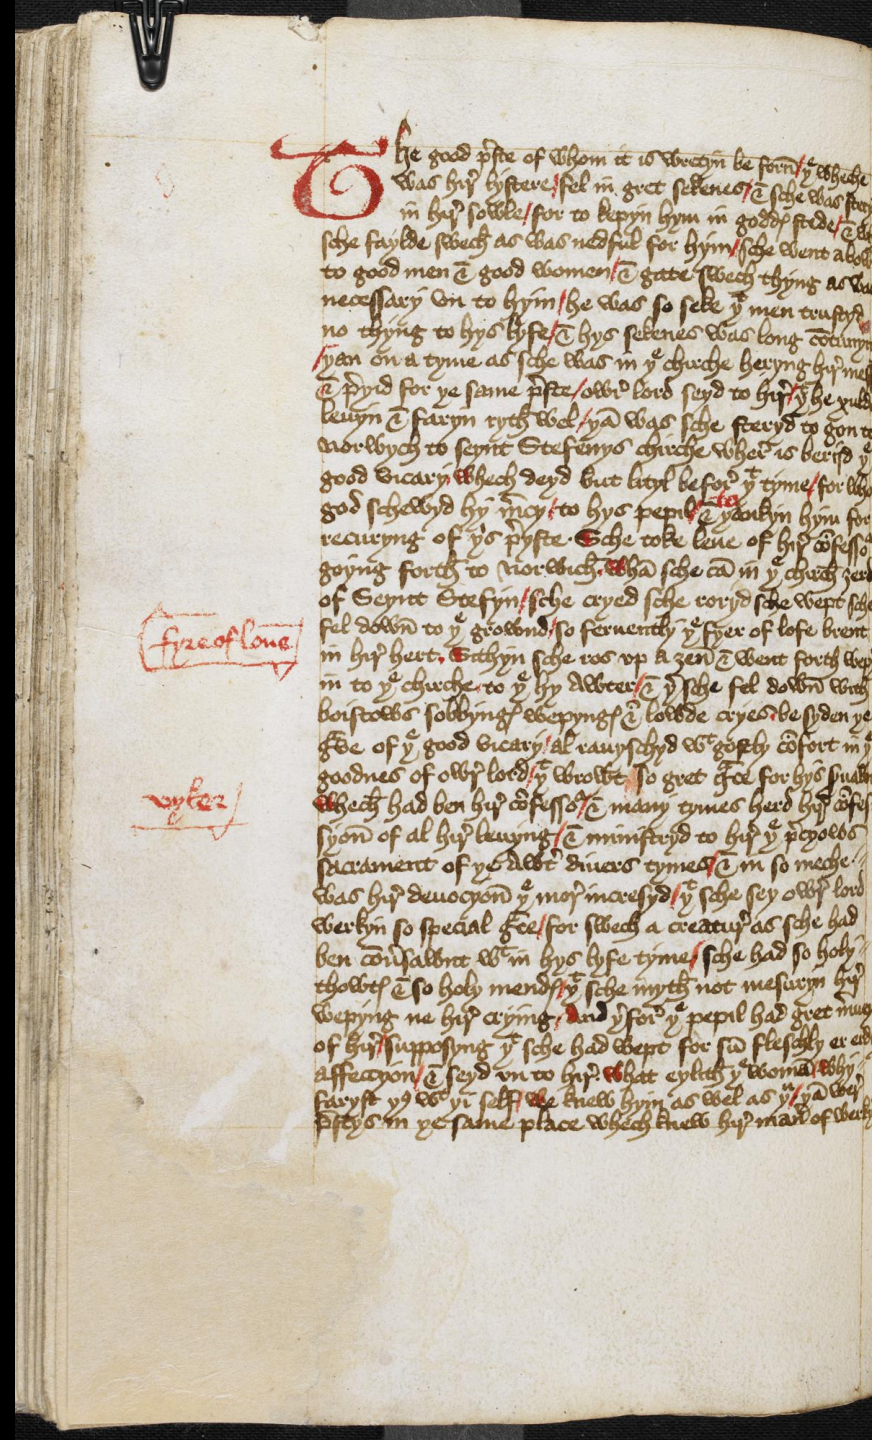 The good p̄ste of whom it is wretyn be forn̄ / yͤ wheche
was hir̛ lystere / fel in gret sekenes / & sche was
in hir̛ sowle / for to kepyn hym in godd stede / &
sche faylde swech as was nedful for hym / sche went abow
to good men & good women / & gate swech thyng as wa
necessary vn to hym / he was so seke yͭ men trustyd
no thyng to hys lyfe / & hys sekenes was long cōtinuyn
/ yan on a tyme as sche was in yͤ chirche heryng hir̛ mes
& p̄yid for ye same p̄ste / owr̛ lord seyd to hir̛ / yͭ he xuld
leuyn & faryn ryth wel / yā was sche steryd to gon to
Norwych to seynt Stefenys chirche wher̛ is beriid yͤ
good vicary whech deyd but lityl befor̛ yͭ tyme / for who
god schewyd hy m̄cy / to hys pepil / & to yankyn hym for
recuryng of yis p̄yste. Sche toke leue of hir̛ cōfesso
goyng forth to Norwich. whā sche cā in yͤ chirch ȝerd
of Seynt Stefyn / sche cryed sche roryd sche wept sche
fel down̄ to yͤ grownd / so feruently yͤ fyer of lofe brent
fyre of loue
in hir̛ hert. Sithyn sche ros vp a ȝen̄ & went forth wep
in to yͤ chirche to yͤ hy Awter / & yͬ sche fel down̄ with
boistows sobbyng wepyng & lowde cryes be syden ye
ḡue of yͤ good vicary / al rauyschyd wͭ gostly cōfort in yͤ
goodnes of owr̛ lord / yͭ wrowt so gret ḡce for hys ſuawnt
vyker
whech had ben hir̛ cōfesso / & many tymes herd hir̛ cōfes
syon̄ of al hir̛ leuyng / & ministryd to hir̛ yͤ p̄cyows
sacrament of ye Awt diuers tymes / & in so meche
was hir̛ deuocyon̄ yͤ mor̛ incresyd / yͭ sche sey owr̛ lord
werkyn so special ḡce / for swech a creatur̛ as sche had
ben cōusawnt wͭ in hys lyfe tyme / sche had so holy
thowt & so holy mend / yͭ sche myth not mesuryn hir̛
wepyng ne hir̛ crying. And yͬfor̛ yͤ pepil had gret
of hir̛ / supposyng yͭ sche had wept for sū fleschly er erd
affeccyon / & seyd vn to hir̛. what eylith yͤ womā / why
faryst yͧ wͭ yi self / we knew hym as wel as yͧ / yā wer̛
p̄stys in ye same place whech knew hir̛ man̄ of werk